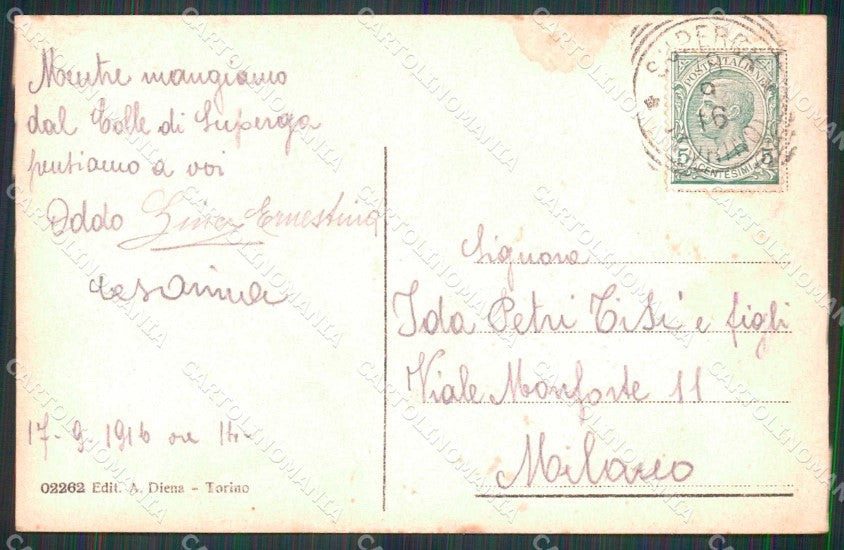 Mentre mangiamo
dal Colle di Superga
pensiamo a voi
Oddo Ernestina
17-9-1916 ore 14-
02262 Edit. A. Diena - Torino
SUPERGA
9 16
POSTE ITALIANE
5 CENTESIMI 5
Signora
Ida Petri Tisi e figli
Viale Monforte 11
Milano
CARTOLINOMANIA